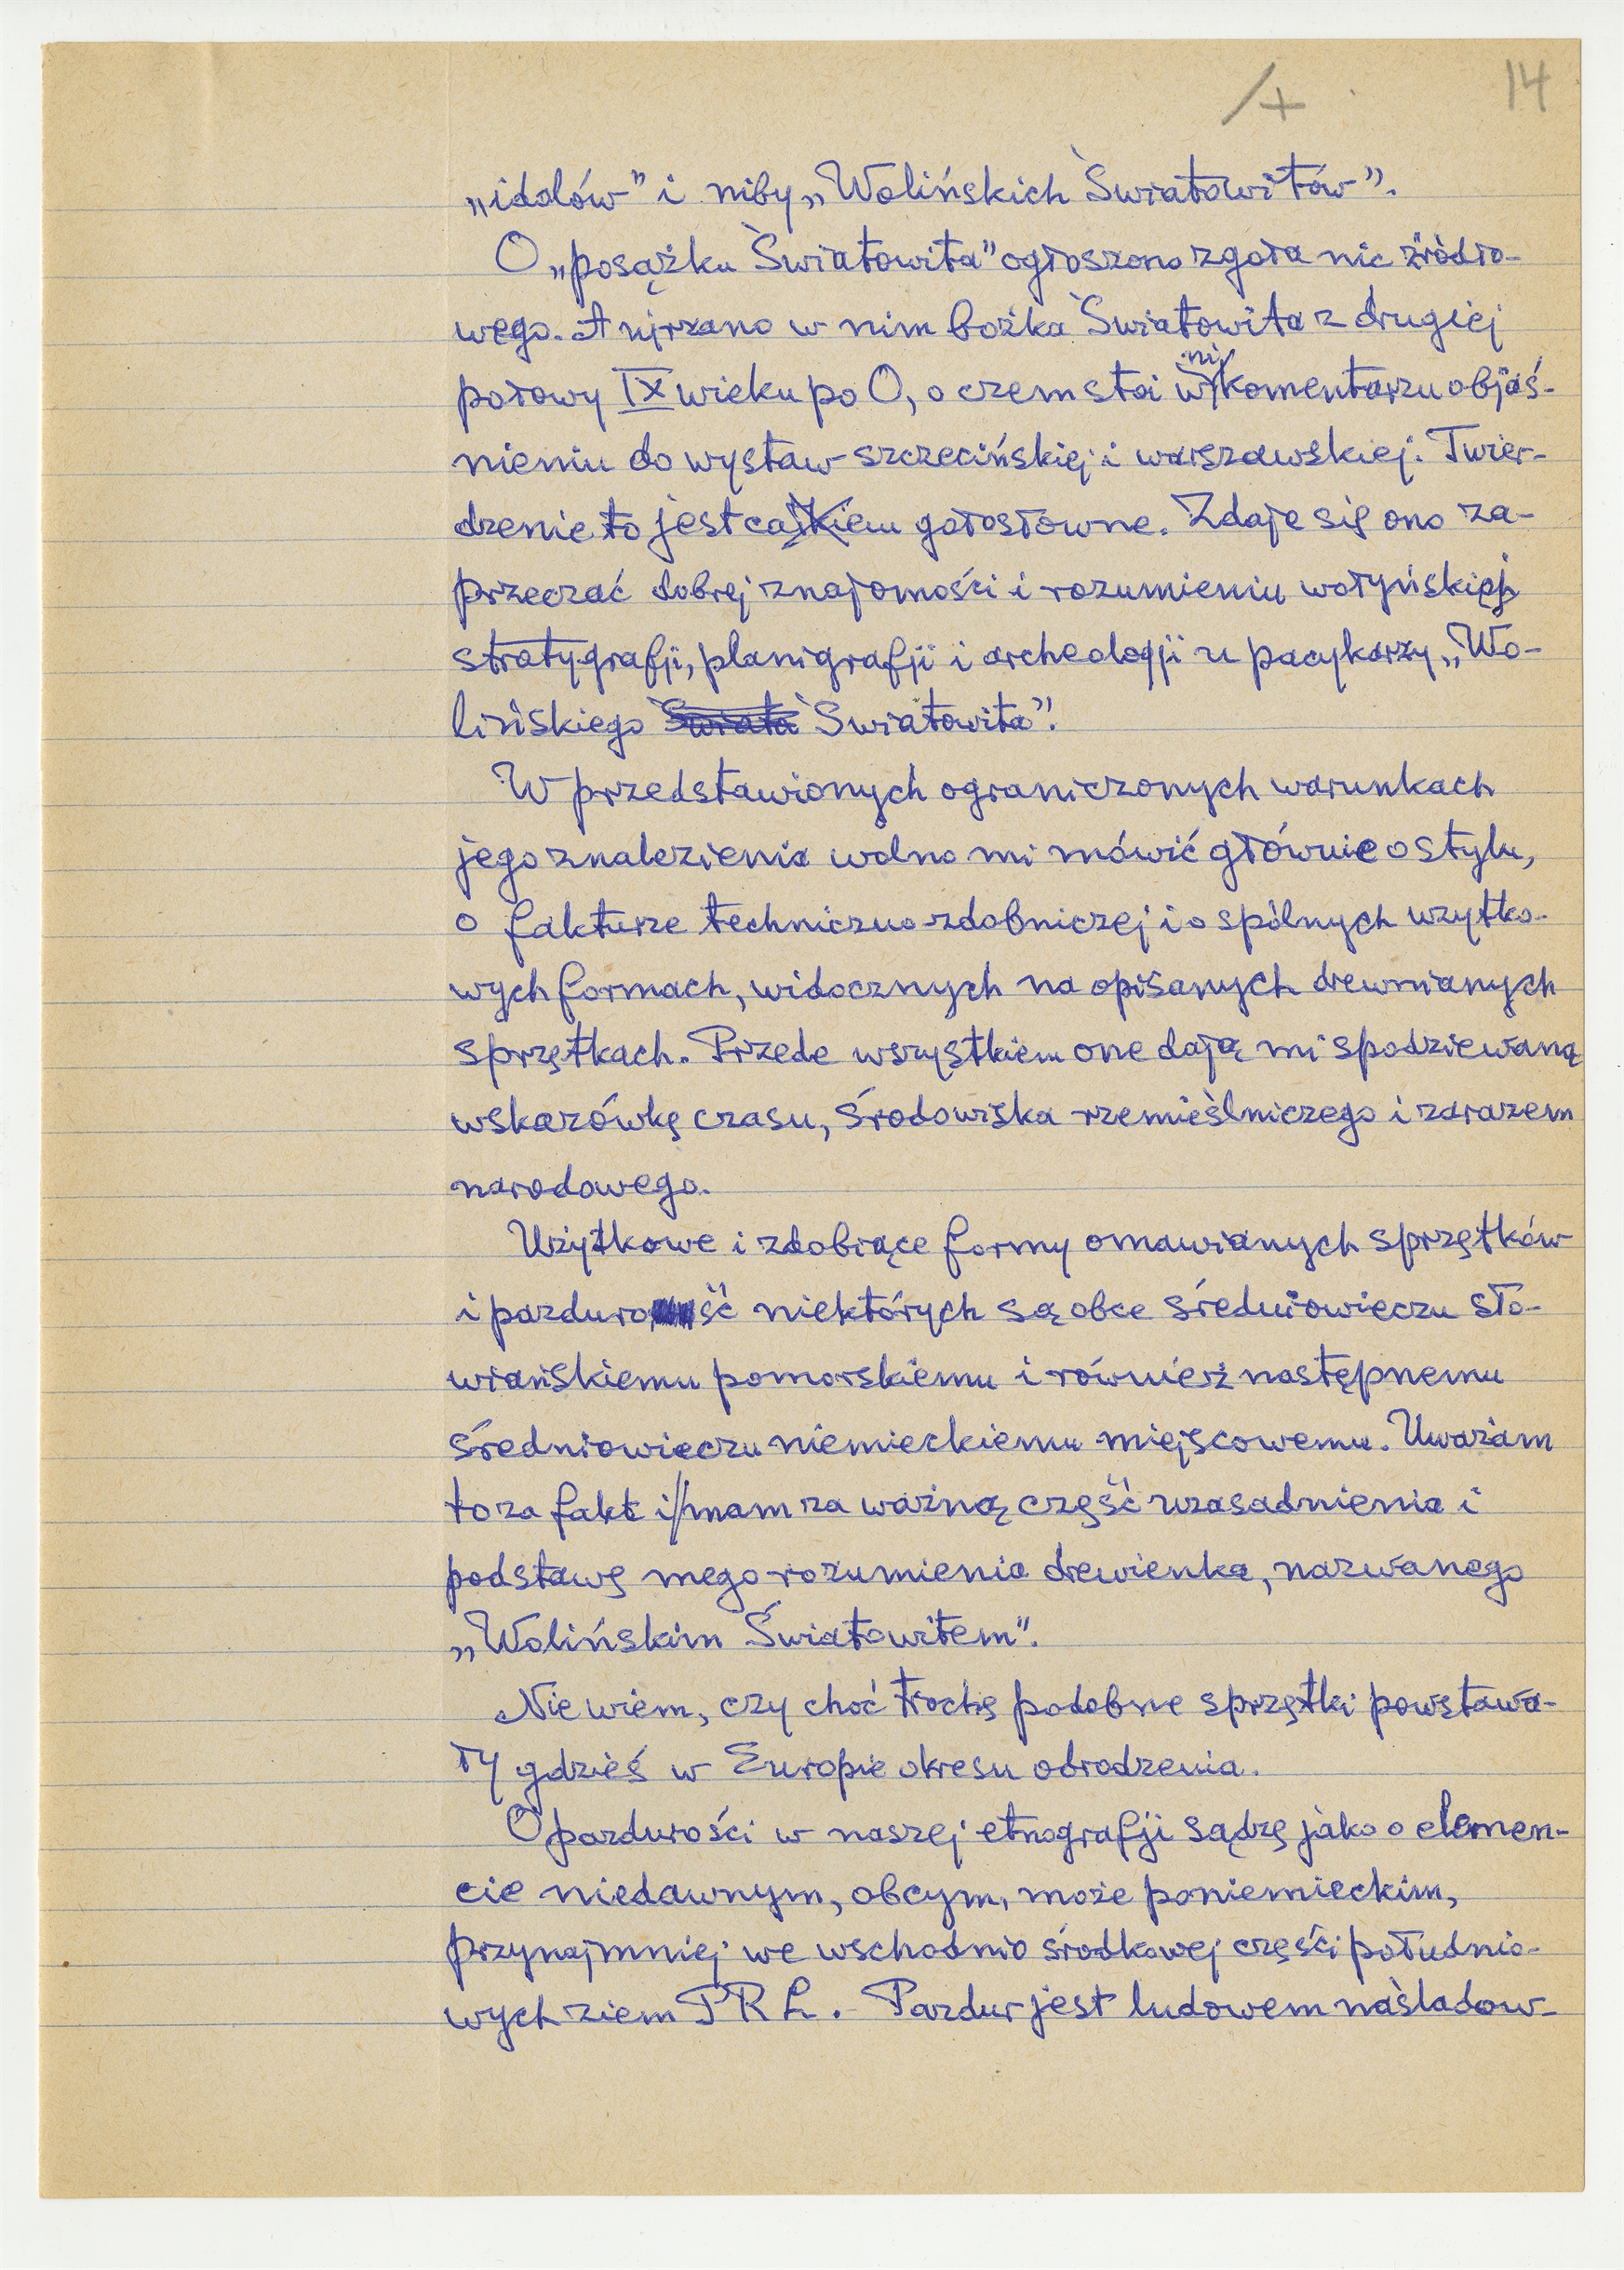 14
„idolów” i niby „Wolińskich Światowitów”.
O „posążku Światowita” ogłoszono zgoła nic źródło-
wego. A ujrzano w nim bożka Światowita z drugiej
połowy IX wieku po O, o czem stoi w komentarzu objaś-
nieniu do wystaw szczecińskiej i warszawskiej. Twier-
dzenie to jest całkiem gołosłowne. Zdaje się ono za-
przeczać dobrej znajomości i rozumieniu wołyńskiej
stratygrafji, planigrafji i archeologji u pacykarzy „Wo-
lińskiego Świata Światowita”.
W przedstawionych ograniczonych warunkach
jego znalezienia wolno mi mówić głównie o stylu,
o fakturze techniczno-zdobniczej i o spólnych użytko-
wych formach, widocznych na opisanych drewnianych
sprzętkach. Przede wszystkiem one dają mi spodziewaną
wskazówkę czasu, środowiska rzemieślniczego i zarazem
narodowego.
Użytkowe i zdobiące formy omawianych sprzętków
i pazdurość niektórych są obce średniowieczu sło-
wiańskiemu pomorskiemu i również następnemu
średniowieczu niemieckiemu miejscowemu. Uważam
to za fakt i mam za ważną część uzasadnienia i
podstawę mego rozumienia drewienka, nazwanego
„Wolińskim Światowitem”.
Nie wiem, czy choć trochę podobne sprzętki powstawa-
ły gdzieś w Europie okresu odrodzenia.
O pazdurości w naszej etnografji sądzę jako o elemen-
cie niedawnym, obcym, może poniemieckim,
przynajmniej we wschodnio środkowej części południo-
wych ziem PRL. – Pazdur jest ludowem naśladow-